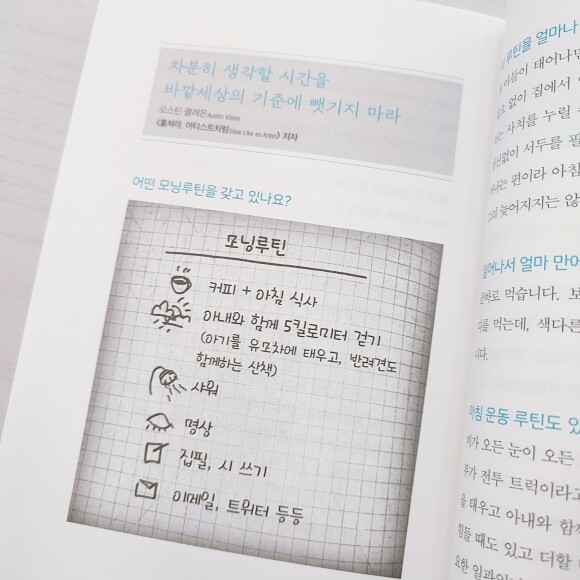 차분히 생각할 시간을
바깥세상의 기준에 뺏기지 마라
오스틴 클레온Austin Kleon
《훔쳐라, 아티스트처럼(Steal Like an Artist)》 저자
어떤 모닝루틴을 갖고 있나요?
모닝루틴
커피 + 아침 식사
아내와 함께 5킬로미터 걷기
(아기를 유모차에 태우고, 반려견도
함께하는 산책)
샤워
명상
집필, 시 쓰기
이메일, 트위터 등등
루틴을 얼마나
아들이 태어나면
없이 집에서
는 사치를 누릴
없이 서두를 필
나는 편이라 아침
늦어지지는 않
일어나서 얼마 만에
바로 먹습니다. 보
를 먹는데, 색다른
니다.
아침 운동 루틴도 있
비가 오든 눈이 오든
부가 전투 트럭이라고
을 태우고 아내와 함께
힘들 때도 있고 더할
요한 일과입니다